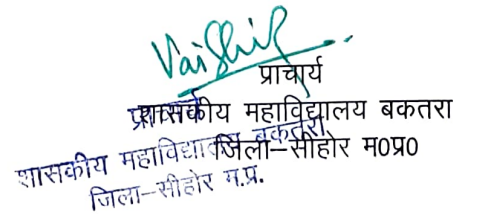 प्राचार्य
शासकीय महाविद्यालय बकतरा
जिला–सीहोर म0प्र0
प्राचार्य
शासकीय महाविद्यालय बकतरा
जिला–सीहोर म.प्र.